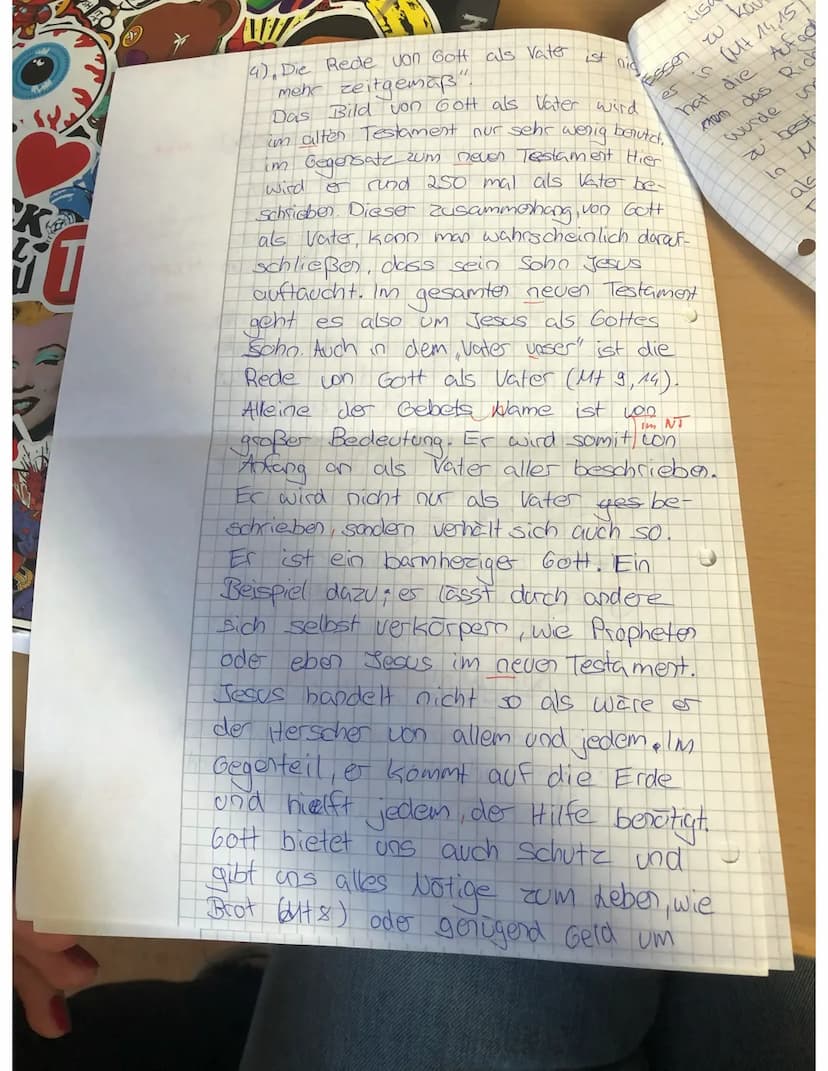 4) „Die Rede von Gott als Vater ist nic
mehr zeitgemäß".
Das Bild von Gott als Vater wird
im alten Testament nur sehr wenig benutzt,
im Gegensatz zum neuen Testament. Hier
wird er rund 250 mal als Vater be-
schrieben. Dieser Zusammenhang, von Gott
als Vater, kann man wahrscheinlich darauf-
schließen, dass sein Sohn Jesus
auftaucht. Im gesamten neuen Testament
geht es also um Jesus als Gottes
Sohn. Auch in dem „Vater unser" ist die
Rede von Gott als Vater (Mt 9,14).
Alleine der Gebets Name ist von
im NT
großer Bedeutung. Er wird somit von
Anfang an als Vater aller beschrieben.
Er wird nicht nur als Vater ges be-
schrieben, sondern verhält sich auch so.
Er ist ein barmheziger Gott. Ein
Beispiel dazu: er lässt durch andere
sich selbst verkörpern, wie Propheten
oder eben Jesus im neuen Testament.
Jesus handelt nicht so als wäre er
der Herscher von allem und jedem. Im
Gegenteil, er kommt auf die Erde
und hielft jedem, der Hilfe benötigt.
Gott bietet uns auch Schutz und
gibt uns alles Nötige zum Leben, wie
Brot (Mt 8) oder genügend Geld um
essen zu kau
es in (Mt 14,15)
hat die Aufga
man das Rich
wurde un
zu best
In M
als